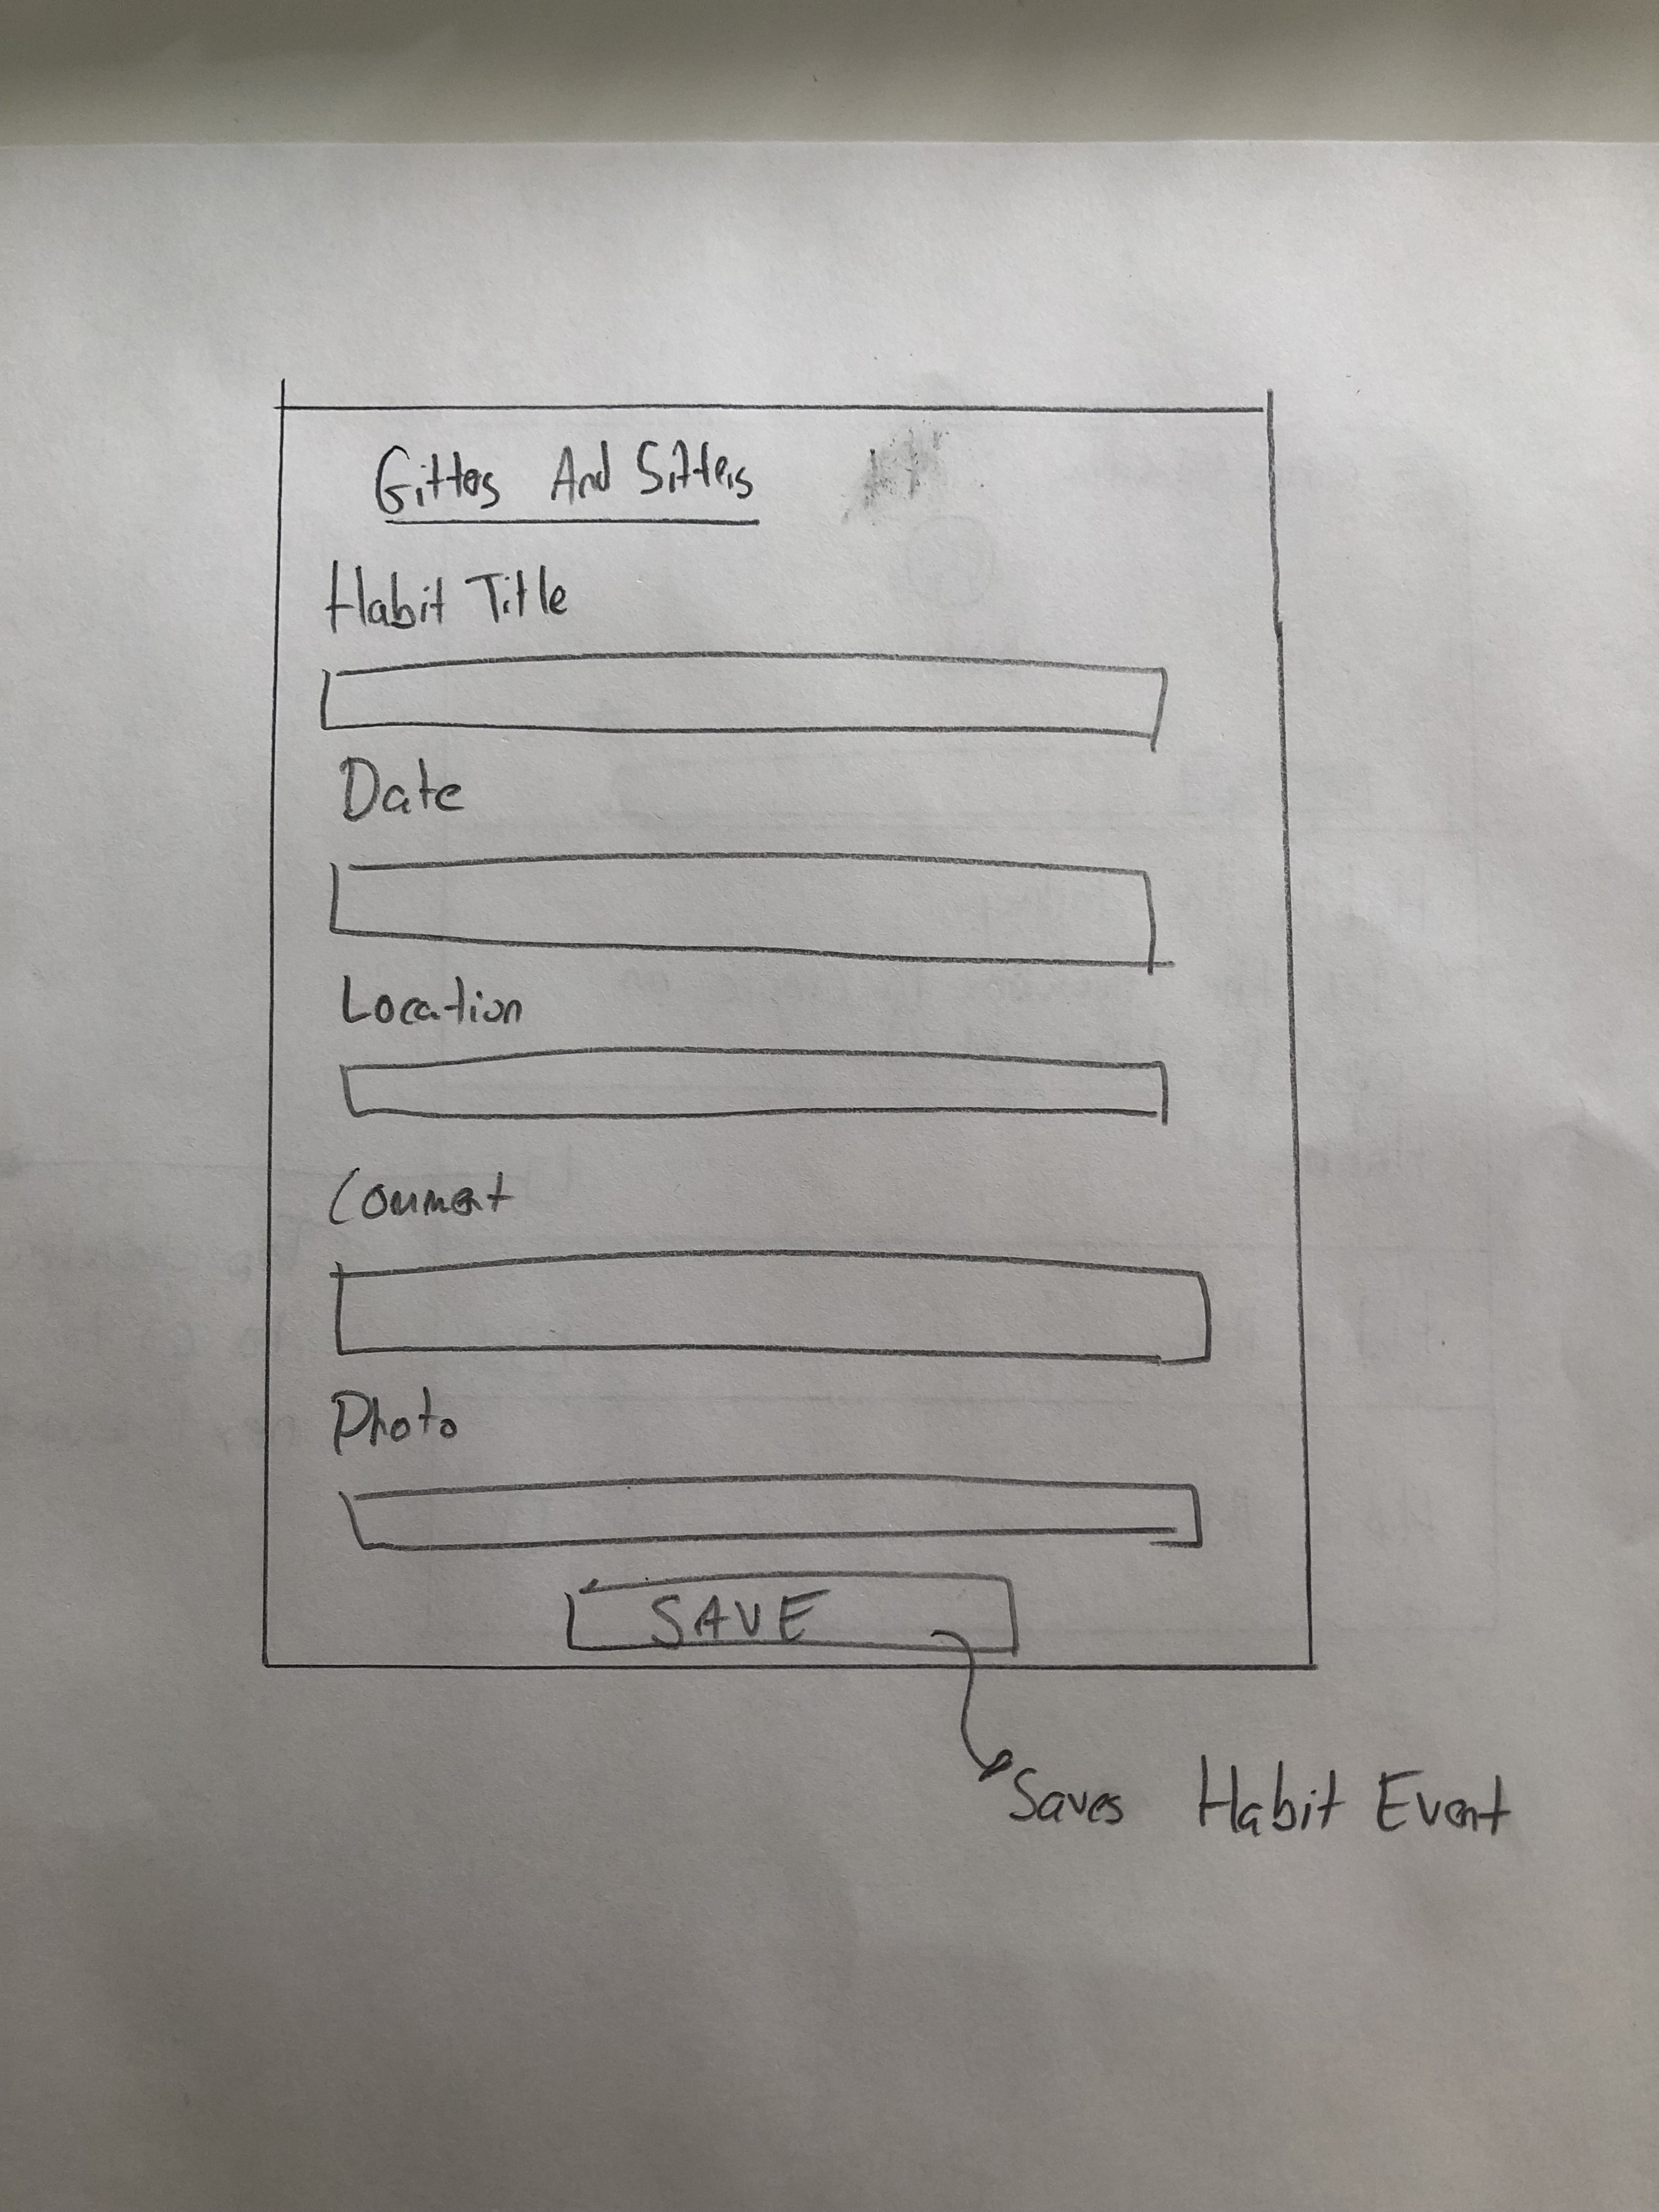 Gitters And Sitters
Habit Title
Date
Location
Comment
Photo
SAVE
Saves Habit Event